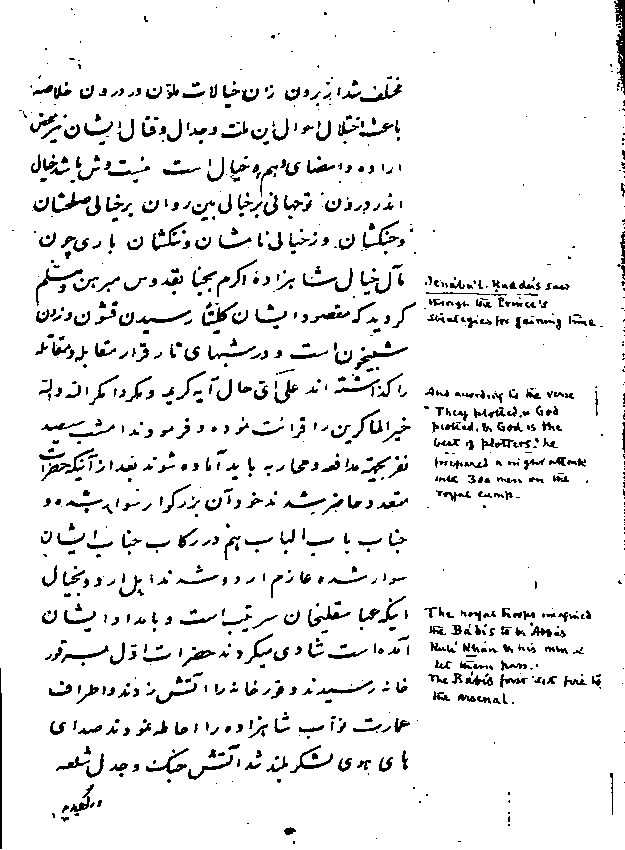 مختلف شد از برون زان خیالات ملون در درون خلاصه
باعث اختلال احوال این ملت و جدال و قتال ایشان نیز محض
اراده و امضای وهم و خیال است نیست وش باشد خیال
اندر روان تو جهانی بر خیالی بین روان بر خیالی صلحشان
و جنکشان وز خیالی نامشان و ننکشان باری چون
مآل خیال شاهزاده اکرم بجناب قدوس مبرهن و مسلم
کردید که مقصود ایشان رسیدن قشون و زدن
شبیخون است و در شبهای تار قرار مقابله و مقاتله
را کذاشته اند علی ای حال آیه کریمه و مکروا و مکر الله و الله
خیر الماکرین را قرائت نموده و فرمودند امشب سیصد
نفر بجهة مدافعه و محاربه باید آماده شوند بعد از آنکه حضرات
متعدد و حاضر شدند خود آن بزرکوار سوار شده و
جناب باب الباب هم در رکاب جناب ایشان
سوار شده عازم اردو شدند اهل اردو بخیال
اینکه عباسقلیخان سرتیب است و بامداد ایشان
آمده است شادی میکردند حضرات اول به قور
خانه رسیدند و قورخانه را آتش زدند و اطراف
عمارت نواب شاهزاده را احاطه نمودند صدای
های هوی لشکر بلند شد آتش جنک و جدل شعله
Jenáb-i-Kuddús saw
through the Prince's
strategies for gaining time.
And according to the verse
"They plotted, & God
plotted, & God is the
best of plotters" he
prepared a night attack
with 300 men on the
royal camp.
The royal troops imagined
the Bábís to be 'Abbás
Kulí Khán & his men &
let them pass.
The Bábís first set fire to
the arsenal.